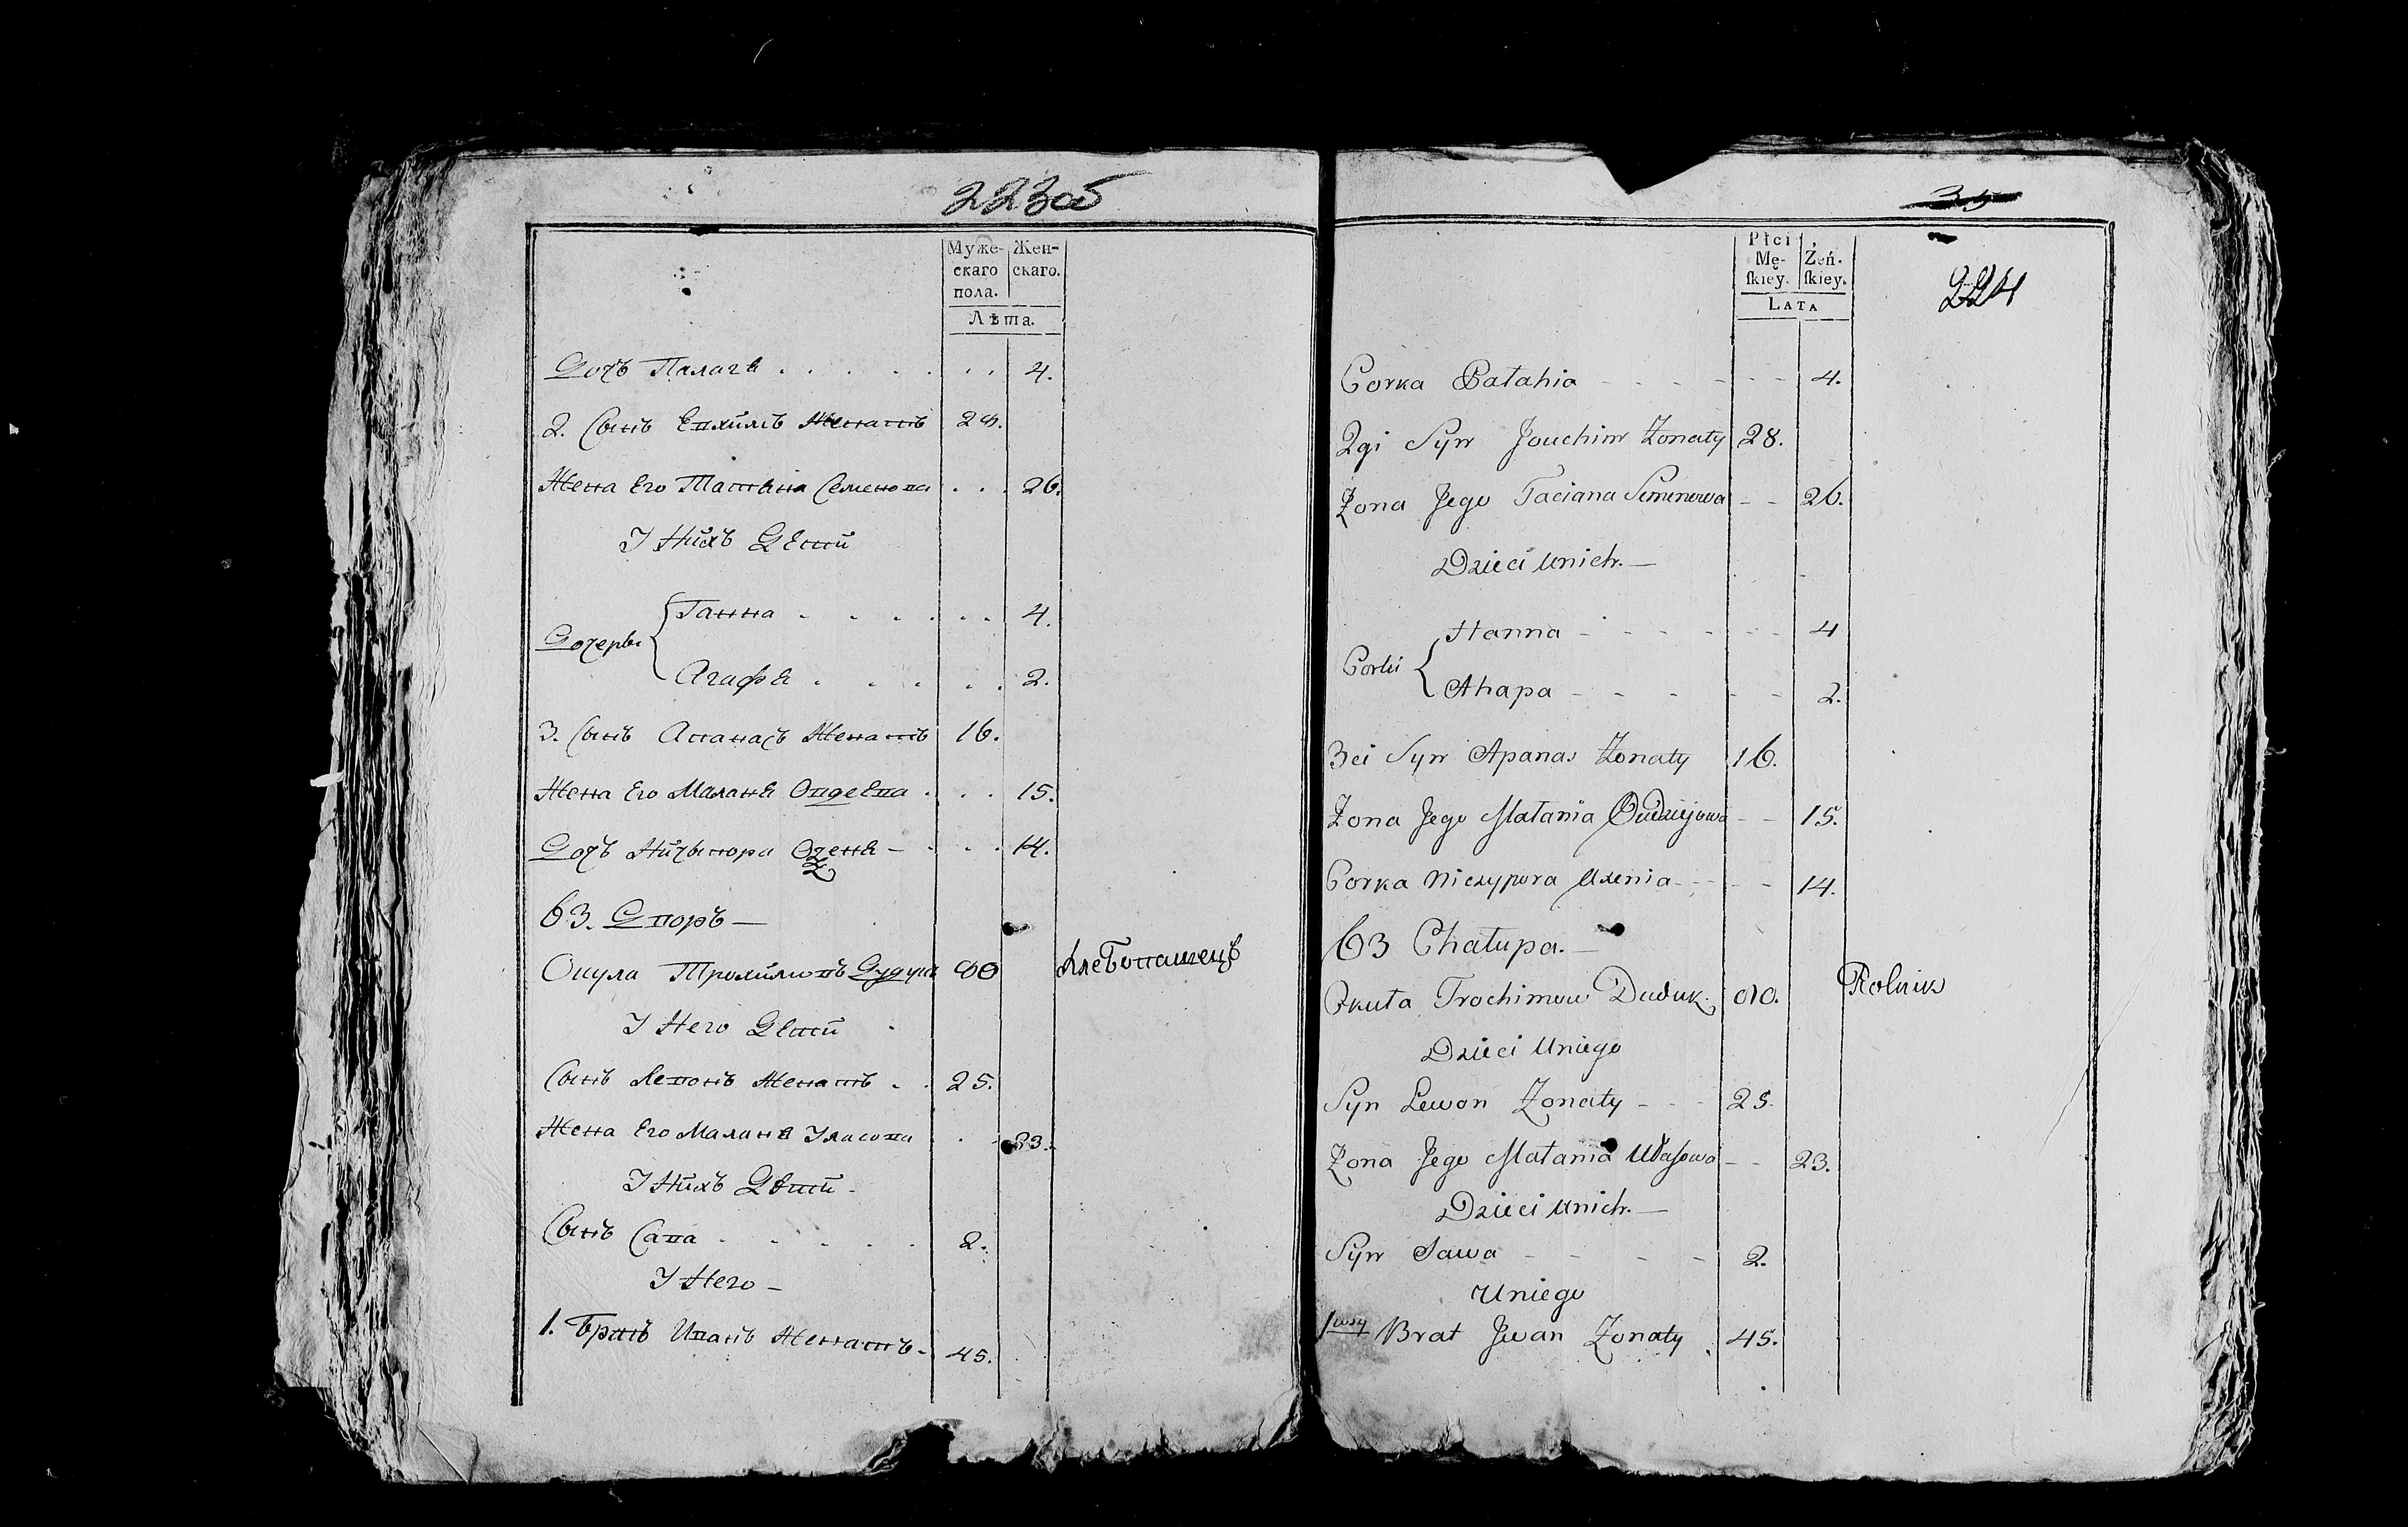 223об
Муже-
скаго
пола.
Жен-
скаго.
Лѣта.
Дочь Палагѣ . . . . . . . 4.
2. Сынъ Евхимъ Женатъ 28.
Жена Его Татѣяна Семенова . . . 26.
У Нихъ Дѣти
Дочеры
Ганна . . . . . . . 4.
Агафѣ . . . . . 2.
3. Сынъ Апанасъ Женатъ 16.
Жена Его Маланѣ Овдеева . . . 15.
Дочь Ничыпора - . . . 14.
63. Дворъ —
Окула Трохимовъ Дудукъ 80 хлебопашецъ
У Него Дѣти
Сынъ Левонъ Женатъ . . 25.
Жена Его Маланѣ Уласова . . 23.
У Нихъ Дѣти -
Сынъ Сава . . . . . 2.
У Него -
1. Братъ Иванъ Женатъ - 45.
35
Płci
Mę-
ſkiey.
Żeń-
ſkiey.
LATA
224
Corka Pałahia - - - - - - - 4.
2gi Syn Jouchim Żonaty 28.
Żona Jego Taciana Semenowa - - 26.
Dzieci unich. —
Corki
Hanna - - - - - - - 4
Ahapa - - - - - 2.
3ci Syn Apanas Żonaty 16.
Żona Jego Małania Oudziejowa - - 15.
Corka Niczypora - - - - 14.
63 Chałupa. —
Okuła Trochimow Duduk. 80. Rolnik
Dzieci Uniego
Syn Lewon Żonaty - - - 25.
Żona Jego Małania Ułasowa - - 23.
Dzieci unich. —
Syn Sawa - - - - 2.
Uniego
1wszy Brat Jwan Żonaty 45.